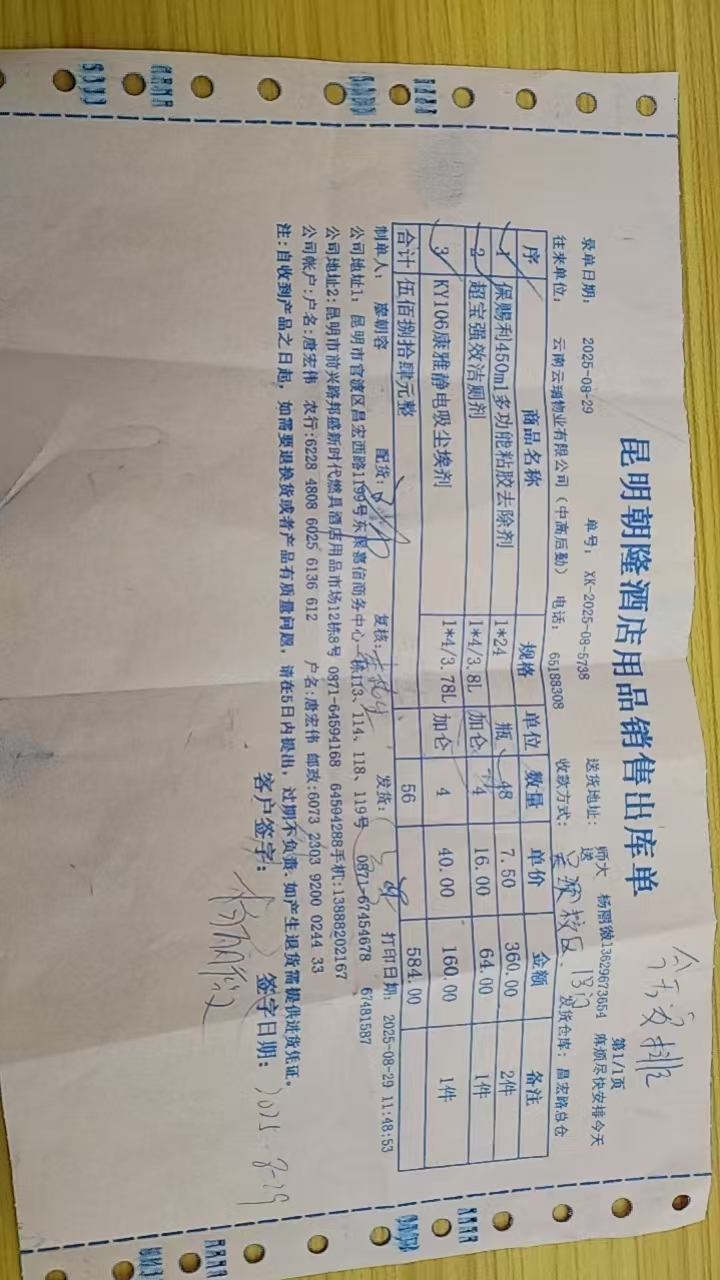 昆明朝隆酒店用品销售出库单
今天安排
第1/1页
录单日期: 2025-08-29 单号: XK-2025-08-5738 送货地址: 师大 杨丽薇13629673654 麻烦尽快安排今天送
往来单位: 云南云瑞物业有限公司(中高后勤) 电话: 65188308 收款方式: 发货仓库: 昌宏路总仓
校区
序 商品名称 规格 单位 数量 单价 金额 备注
1 保赐利450ml多功能粘胶去除剂 1*24 瓶 48 7.50 360.00 2件
2 超宝强效洁厕剂 1*4/3.8L 加仑 4 16.00 64.00 1件
3 KY106康雅静电吸尘埃剂 1*4/3.78L 加仑 4 40.00 160.00 1件
合计 伍佰捌拾肆元整 56 584.00
制单人: 廖朝容 配货: 复核: 发货: 打印日期: 2025-08-29 11:48:53
公司地址1: 昆明市官渡区昌宏西路1199号东聚嘉信商务中心一栋113、114、118、119号 0871-67454678 67481587
公司地址2:昆明市前兴路邦盛新时代燃具酒店用品市场12栋8号 0871-64594168 64594288手机:13888202167
公司帐户:户名:唐宏伟 农行:6228 4808 6025 6136 612 户名:唐宏伟 邮政:6073 2303 9200 0244 33
注:自收到产品之日起, 如需要退换货或者产品有质量问题, 请在5日内提出, 过期不负责.如产生退货需提供进货凭证。
客户签字: 杨丽薇 签字日期: 2025.8-29